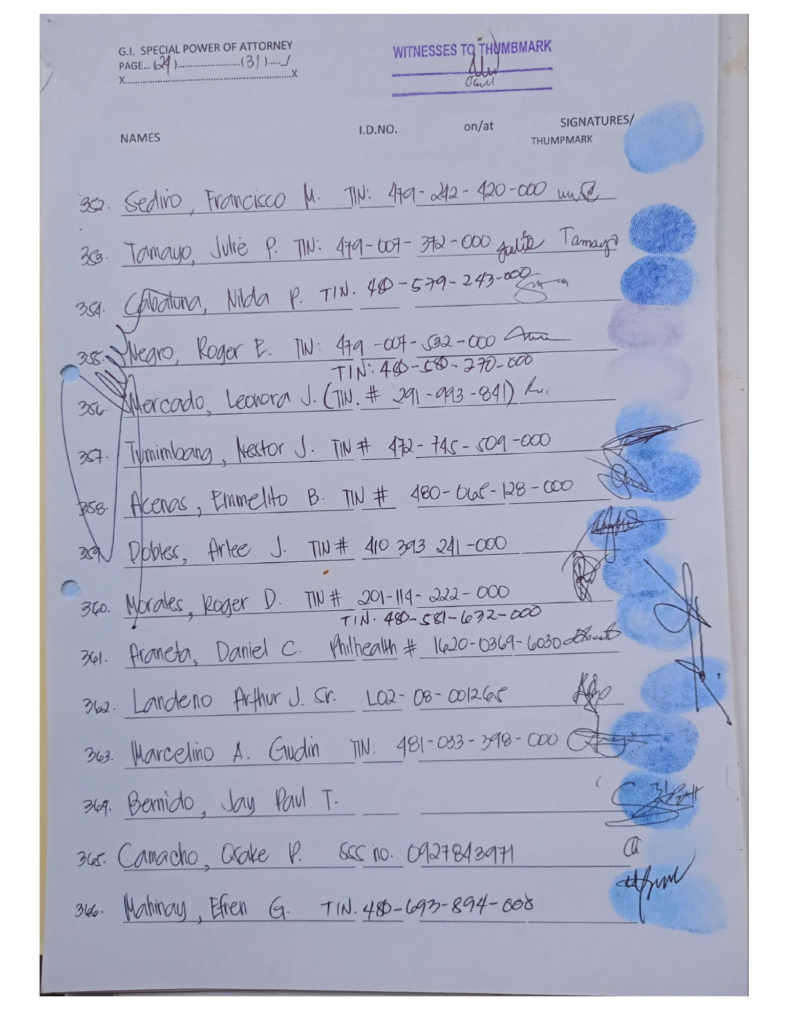 G.I. SPECIAL POWER OF ATTORNEY
PAGE... (29)......................(31).....
X...........................................................X
WITNESSES TO THUMBMARK
NAMES I.D.NO. on/at SIGNATURES/
THUMPMARK
352. Sedino, Francisco M. TIN: 479-242-420-000
353. Tamayo, Julie P. TIN: 479-007-372-000 Julie Tamayo
354. Cabatuna, Nilda P. TIN. 480-579-243-000
355. Negro, Roger E. TIN: 479-007-532-000
TIN: 480-580-270-000
356. Mercado, Leonora J. (TIN. # 291-993-841)
357. Tumimbang, Nestor J. TIN # 472-745-509-000
358. Acenas, Emmelito B. TIN # 480-065-128-000
359. Dobles, Arlee J. TIN # 410 393 241-000
360. Morales, Roger D. TIN # 201-114-222-000
TIN. 480-581-632-000
361. Araneta, Daniel C. Philhealth # 1620-0369-6030
362. Landeno Arthur J. Sr. L02-08-001265
363. Marcelino A. Gudin TIN: 481-033-398-000
364. Bernido, Jay Paul T.
365. Camacho, Osake P. SSS no. 0927843971
366. Mahinay, Efren G. TIN. 480-693-894-000